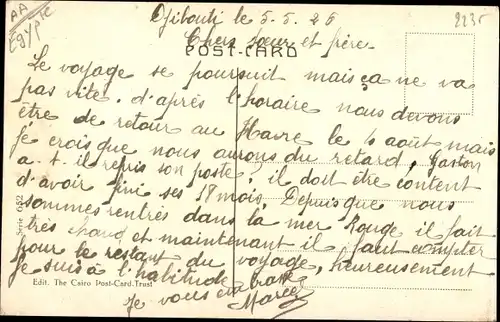 AA
Egypte
Djibouti le 5-5-26
2235
Chers sœur et frère
POST-CARD
Le voyage se poursuit mais ça ne va
pas vite. d'après l'horaire nous devons
être de retour au Havre le 6 août mais
je crois que nous aurons du retard, Gaston
a-t-il repris son poste, il doit être content
d'avoir fini ses 18 mois. Depuis que nous
sommes rentrés dans la mer Rouge il fait
très chaud et maintenant il faut compter
pour le restant du voyage, heureusement
je suis à l'habitude
Je vous embrasse
Marcel
Serie
Edit. The Cairo Post-Card.Trust